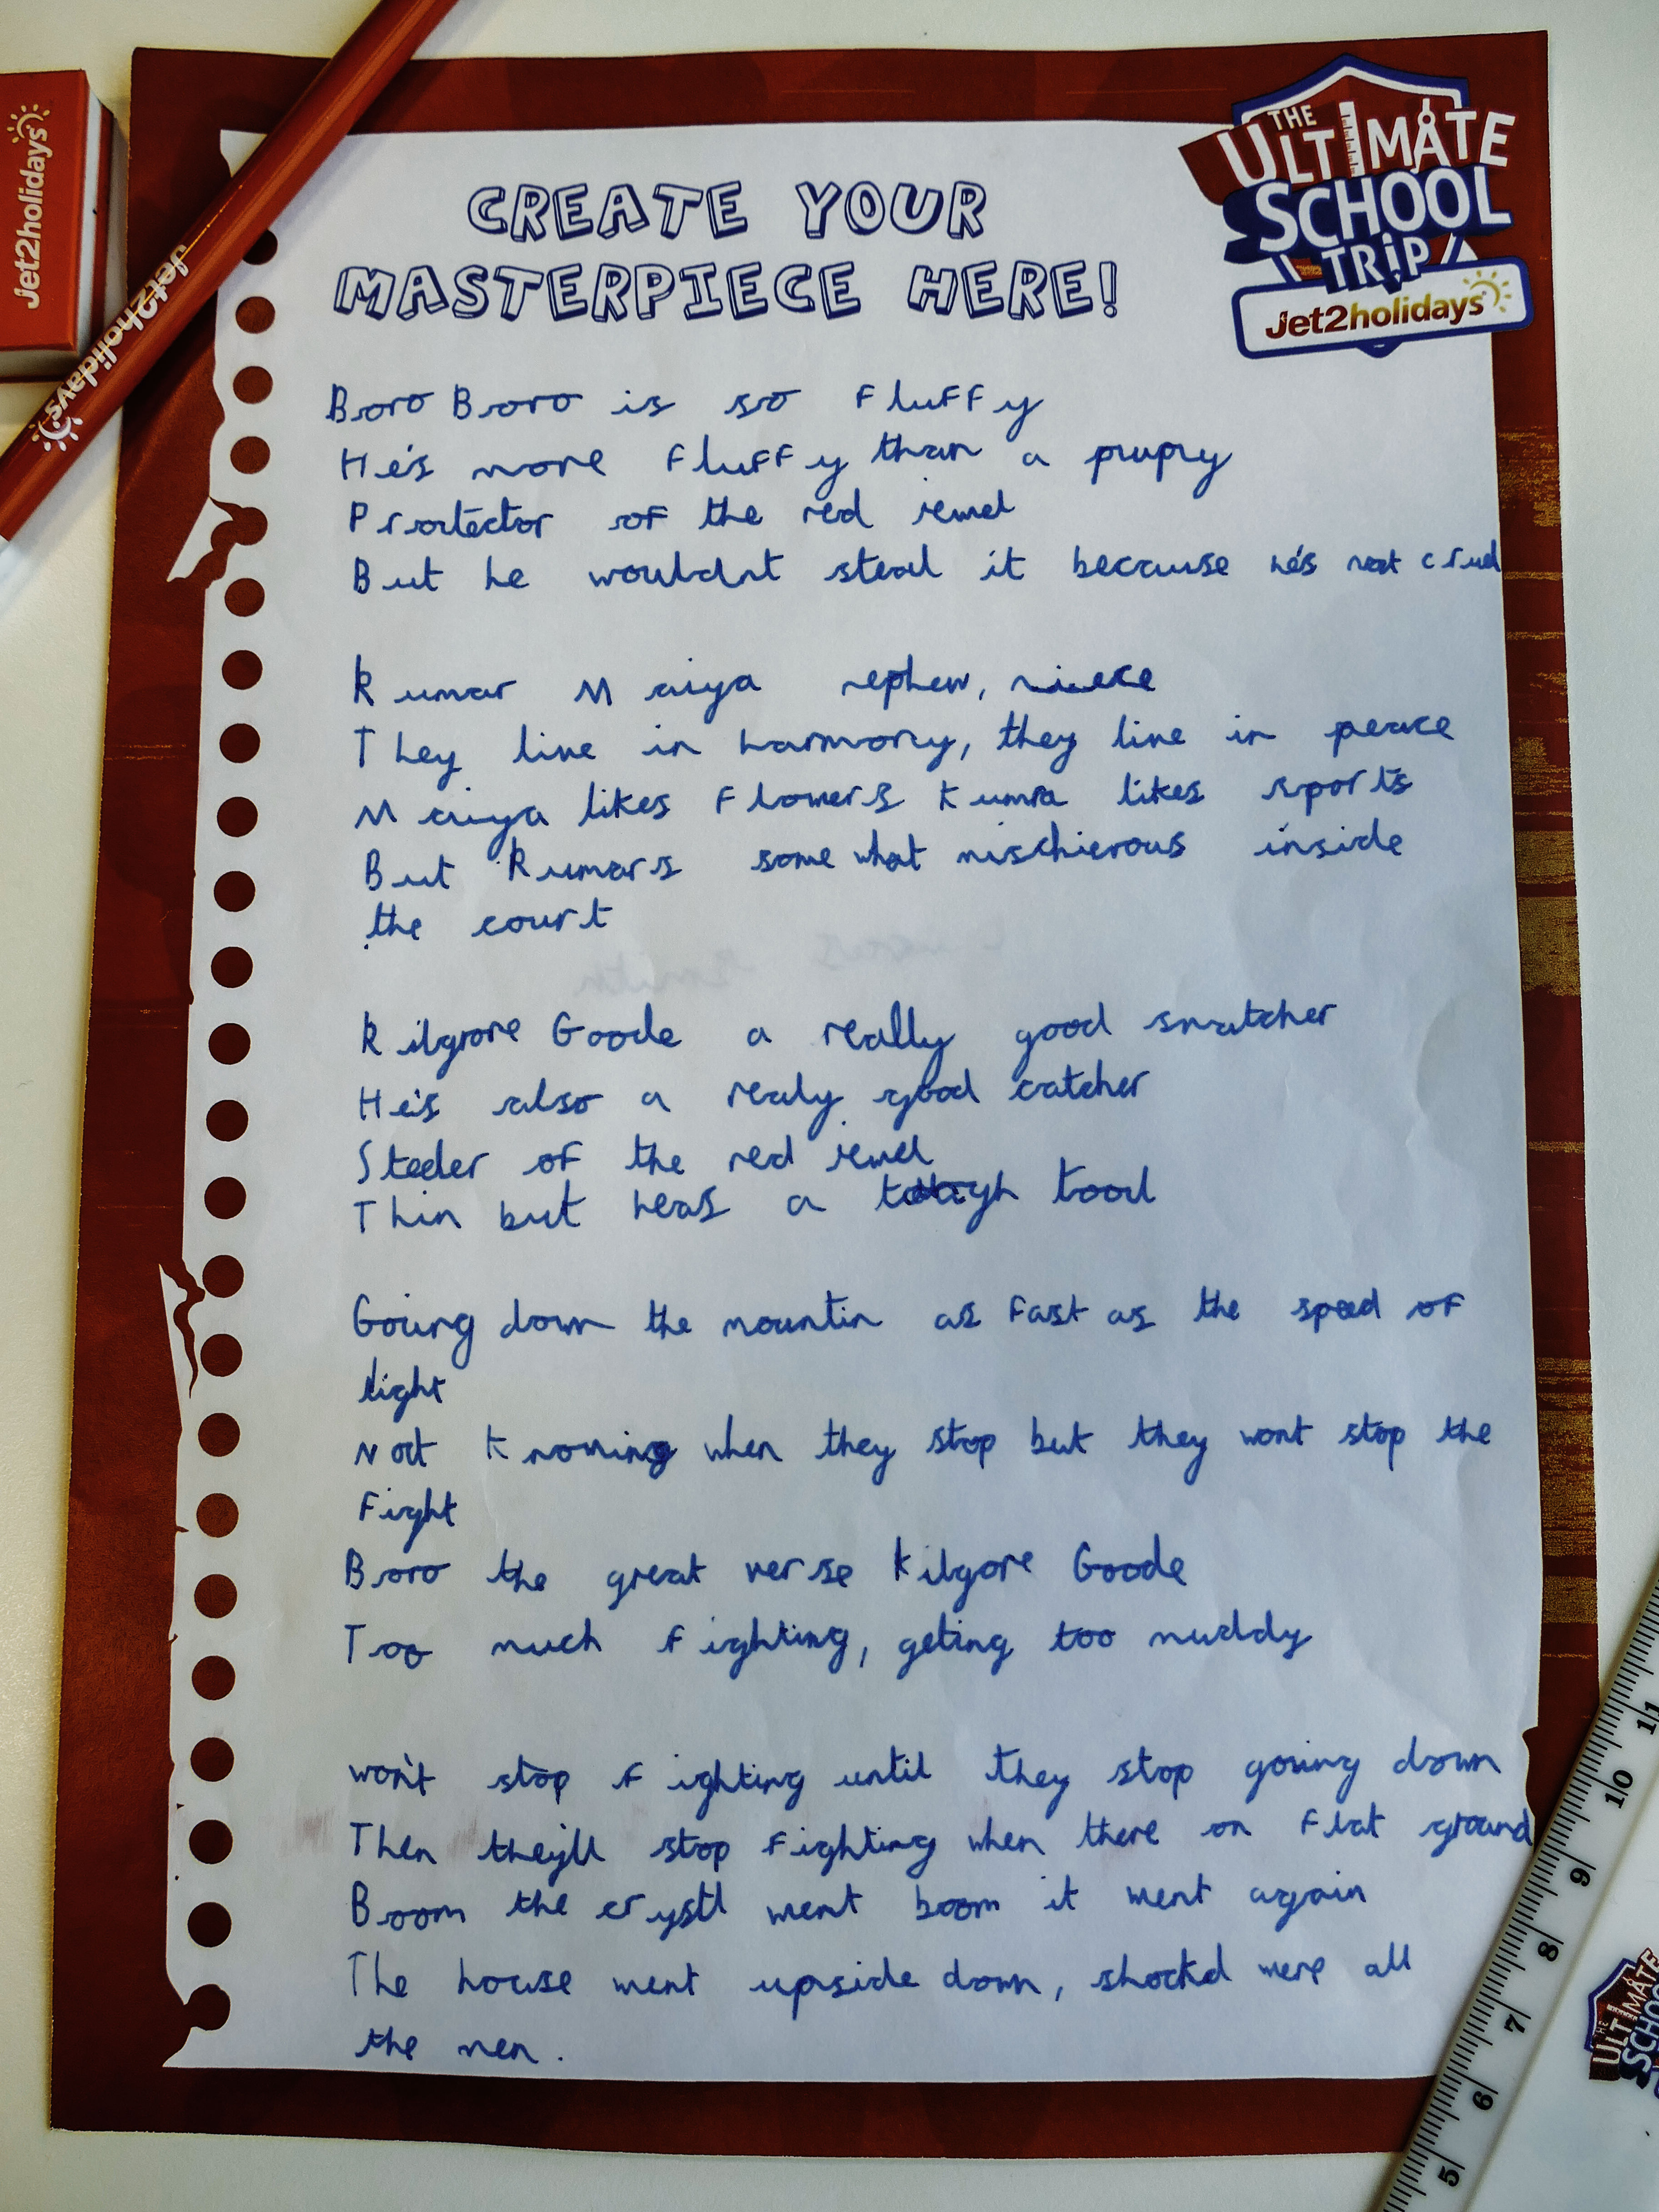 Jet2holidays
Jet2holidays
THE
ULTIMATE
SCHOOL
TRIP
Jet2holidays
CREATE YOUR
MASTERPIECE HERE!
Boro Boro is so fluffy
He's more fluffy than a pupry
Protector of the red jewel
But he wouldnt steal it because he's not cruel
Kumar Maiya nephew, niece
They live in harmony, they live in peace
Maiya likes flowers Kumra likes sports
But Kumars some what mischierous inside
the court
Kilgrore Goode a really good snatcher
He's also a realy good catcher
Steeler of the red jewel
Thin but heas a tough tool
Going down the mountin as fast as the speed of
light
Not knowing when they stop but they wont stop the
fight
Boro the great verse Kilgore Goode
Too much fighting, geting too muddy
won't stop fighting until they stop going down
Then they'll stop fighting when there on flat ground
Boom the crystl went boom it went again
The house went upside down, shockd were all
the men.
11
10
9
8
7
6
5
THE
ULTIMATE
SCHOO